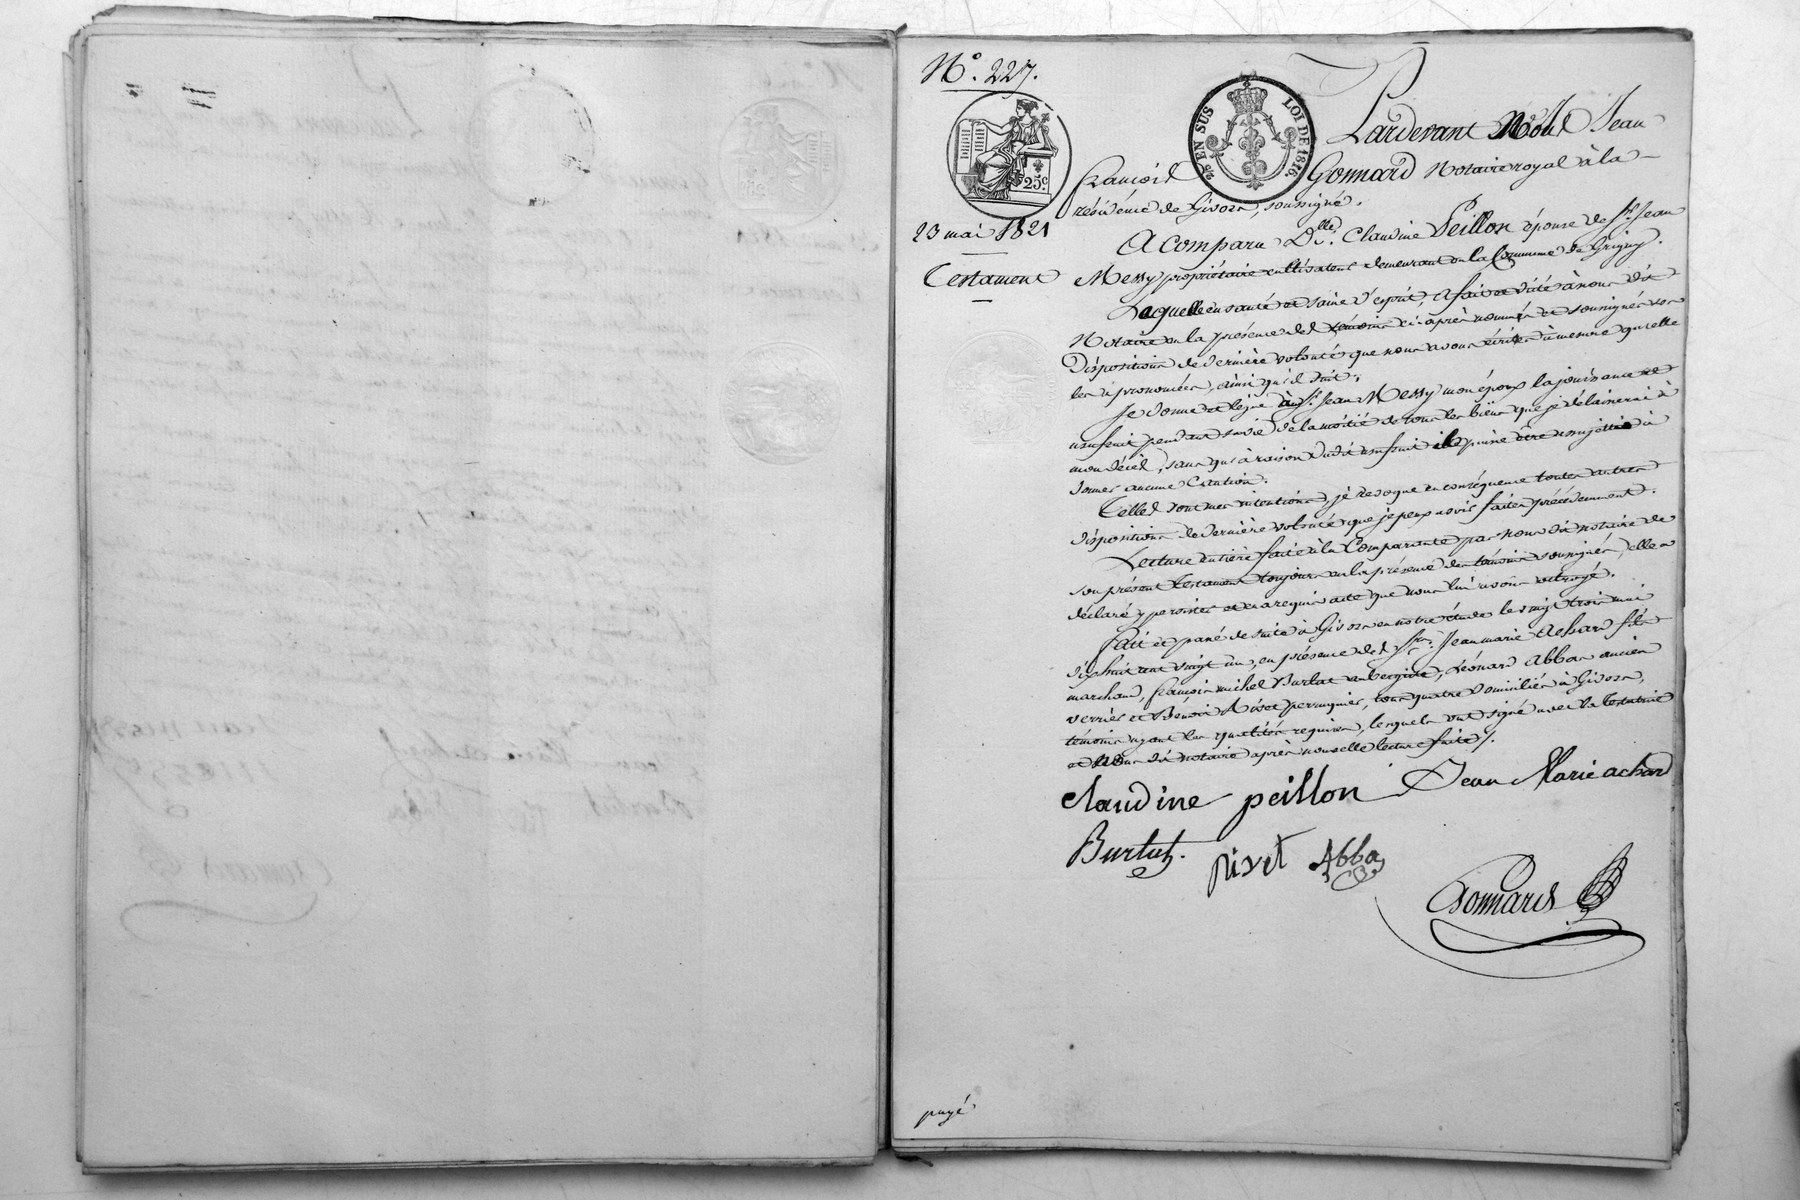 N.° 227.
25 c
25 EN SUS LOI DE 1816
23 mai 1821
Testament
Pardevant M.e Jean
François Gonnard Notaire royal à la
résidence de Givors, soussigné.
A comparu D.lle Claudine Peillon épouse de S.r Jean
Messy propriétaire cultivateur demeurant en la Commune de Grigny.
Laquelle en santé et saine d'esprit, a fait et dicté à nous dit
Notaire en la présence des témoins ci après nommés et soussignés ses
dispositions de dernière volonté que nous avons écrites à mesure qu'elle
les a prononcées, ainsi qu'il suit.
Je donne et lègue au S.r Jean Messy mon époux la jouissance et
usufruit pendant sa vie de la moitié de tous les biens que je délaisserai à
mon décès, sans qu'à raison dudit usufruit il puisse être assujetti à
donner aucune Caution.
Telles sont mes intentions, je revoque en conséquence toutes autres
dispositions de dernière volonté que je peux avoir faites précédemment.
Lecture entière faite à la Comparante par nous dit notaire de
son présent testament toujours en la présence des témoins soussignés, elle a
déclaré y persister et en a requis acte que nous lui avons octroyé.
Fait et passé de suite à Givors en notre étude le vingt trois mai
dix huit cent vingt un, en présence de S.rs Jean marie Achard fils
marchand, françois michel Burlat aubergiste, Léonard Abba ancien
verrier et Benoit Rivet perruquier, tous quatre domiciliés à Givors,
témoins ayant les qualités requises, lesquels ont signé avec la testatrice
et nous dit notaire après nouvelle lecture faite /.
claudine peillon Jean Marie achard
Burlat. rivet Abba
Gonnard
payé